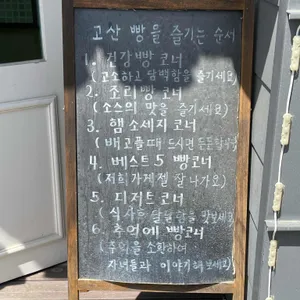 고산 빵을 즐기는 순서
1. 건강빵 코너
(고소하고 담백함을 즐기세요)
2. 조리빵 코너
(소스의 맛을 즐기세요)
3. 햄 소세지 코너
(배고플때 드시면 든든합니다)
4. 베스트5 빵코너
(저희가게젤 잘 나가요)
5. 디저트코너
(식사후 달달함을 맛보세요)
6. 추억에 빵코너
(추억을 소환하여
자녀들과 이야기해보세요)